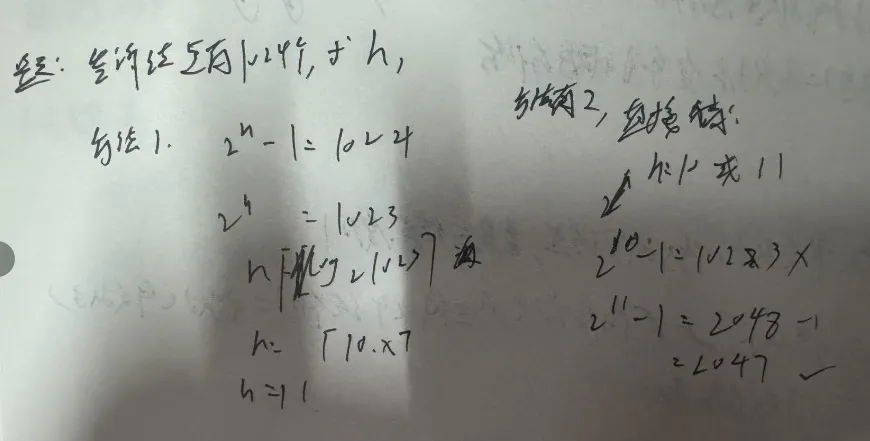 告诉结点有1024个, 求 h,
方法1. 2^h - 1 = 1024
2^h = 1023
h ⌈log₂1023⌉
h = ⌈10.x⌉
h = 11
方法2,
h = 10 或 11
2^10 - 1 = 1023 ×
2^11 - 1 = 2048 - 1
= 2047 ✓